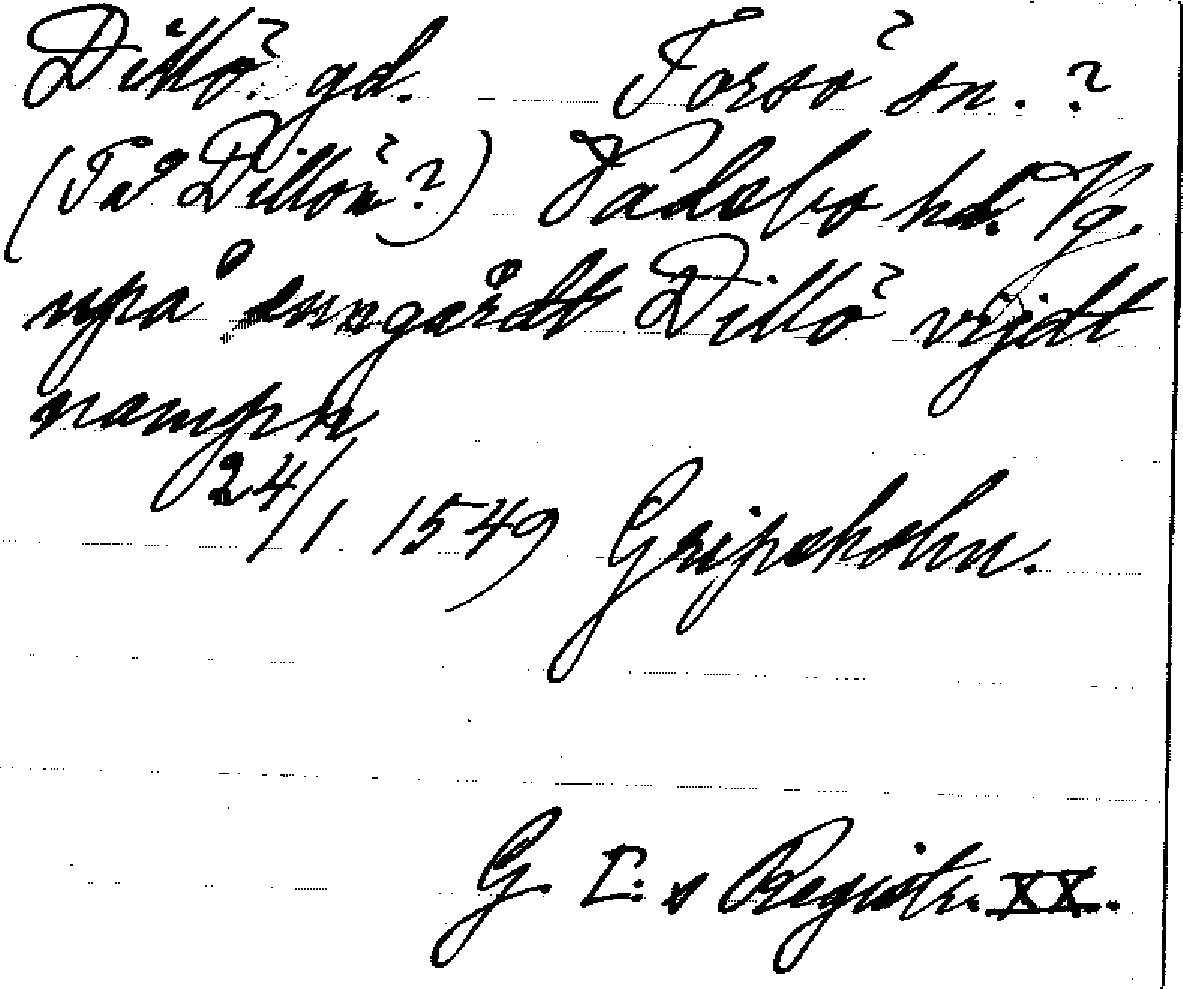 Dillö gd. Torsö sn. ?
(Tå Dillön?) Vadsbo hd. Vg.
upå enngårdt Dillö vijdt
nampn
24/1 1549 Gripsholm.
G. I:s Registr. XX.